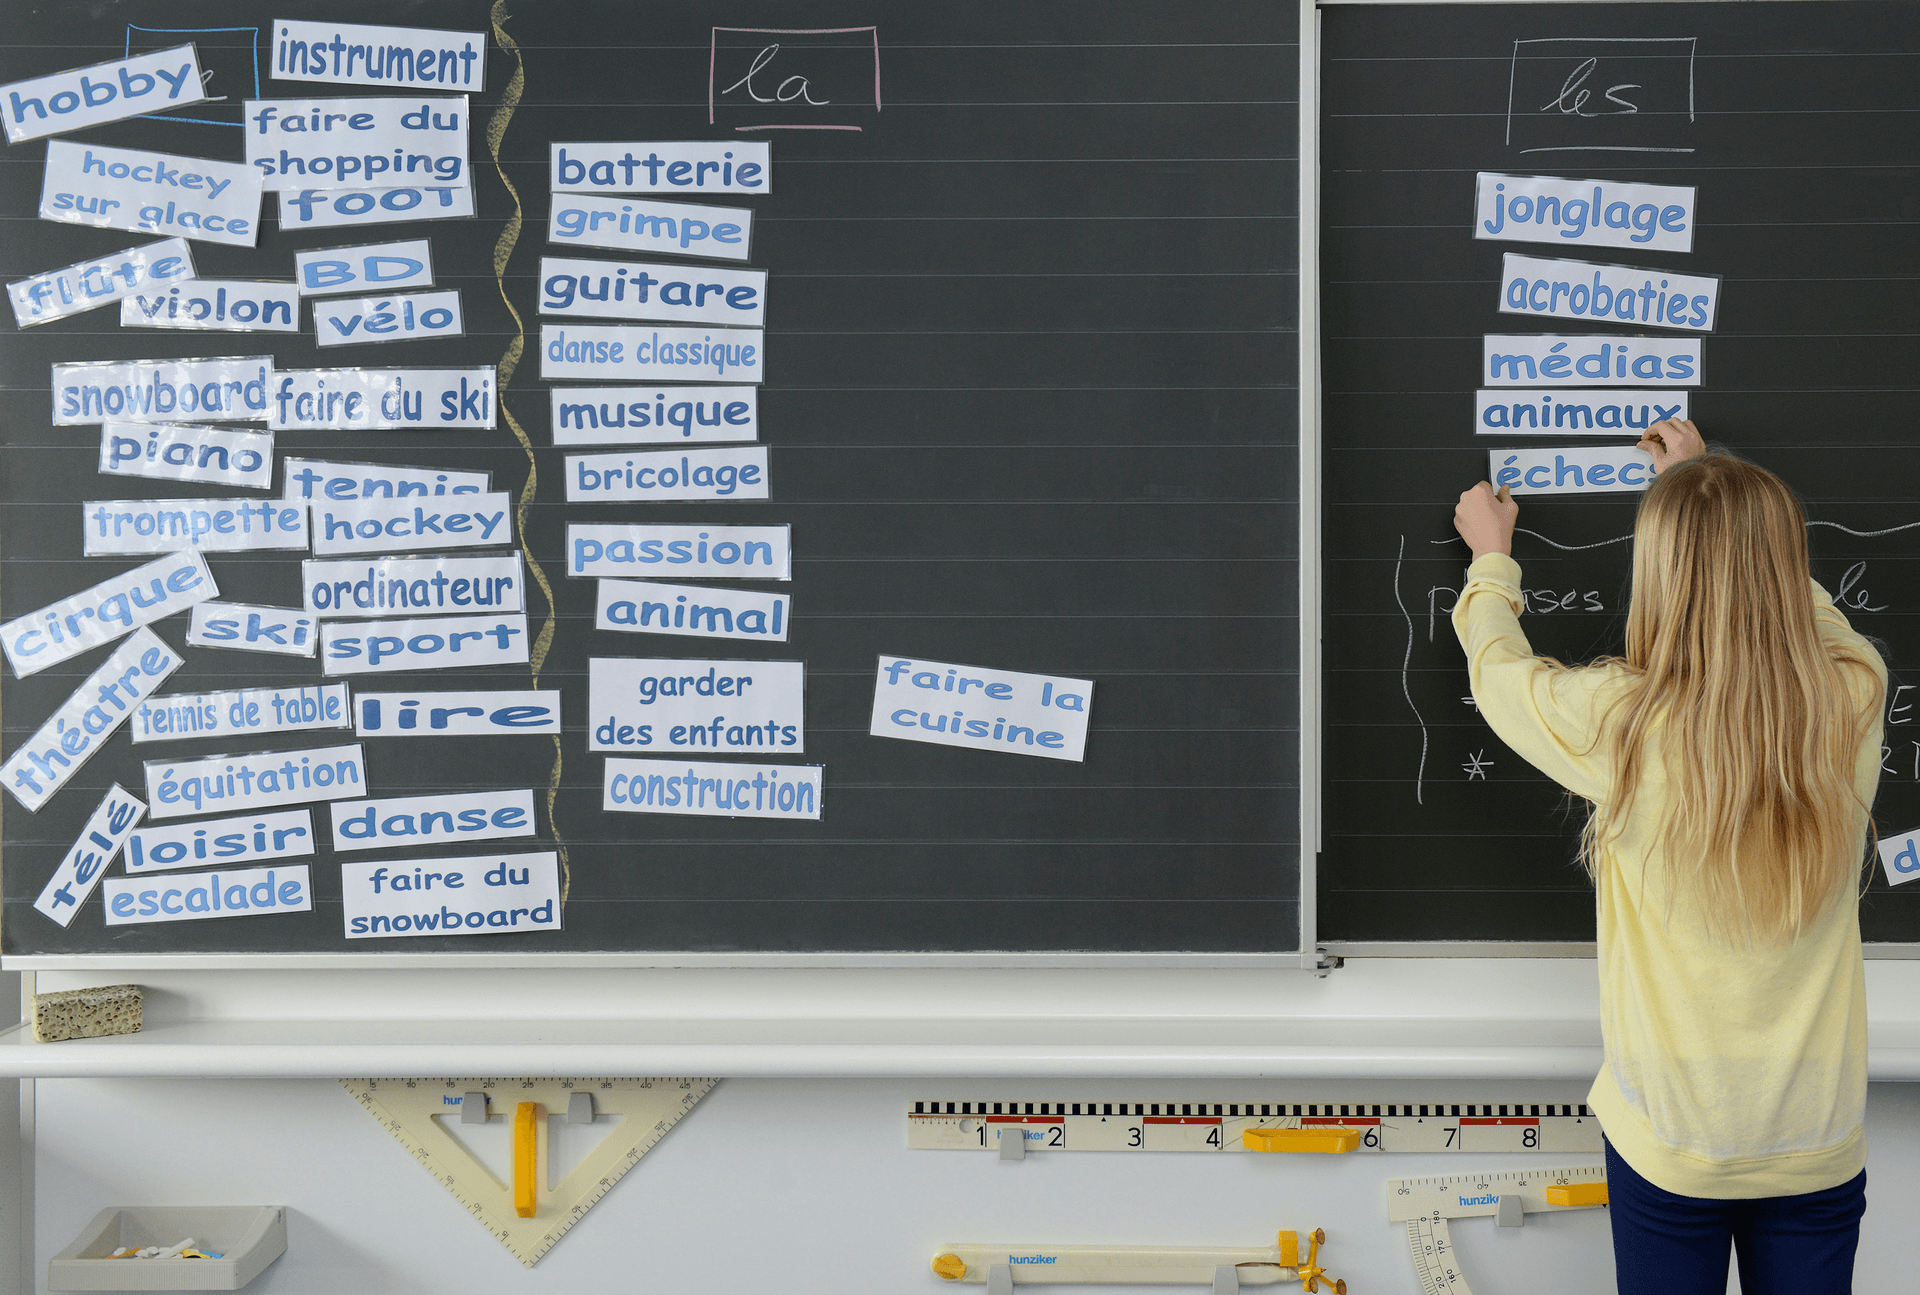 la
les
hobby
instrument
faire du
shopping
hockey
sur glace
foot
flûte
BD
violon
vélo
snowboard
faire du ski
piano
tennis
trompette
hockey
cirque
ordinateur
ski
sport
théatre
tennis de table
lire
équitation
télé
loisir
danse
escalade
faire du
snowboard
batterie
grimpe
guitare
danse classique
musique
bricolage
passion
animal
garder
des enfants
faire la
cuisine
construction
jonglage
acrobaties
médias
animaux
échecs
*
hunziker
1 2 3 4 6 7 8
hunziker
hunziker